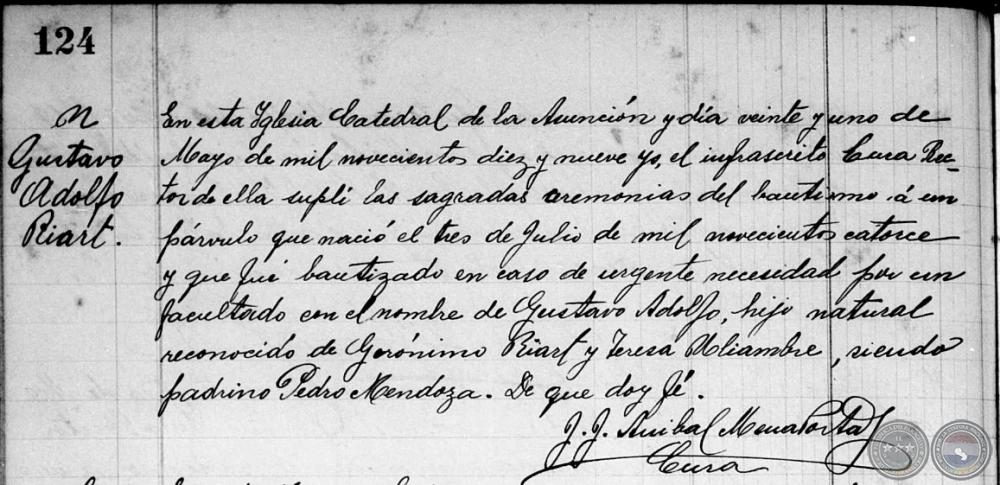 124
N
Gustavo
Adolfo
Riart.
En esta Iglesia Catedral de la Asunción y día veinte y uno de
Mayo de mil novecientos diez y nueve yo, el infrascrito Cura Rec-
tor de ella suplí las sagradas ceremonias del bautismo á un
párvulo que nació el tres de Julio de mil novecientos catorce
y que fué bautizado en caso de urgente necesidad por un
facultado con el nombre de Gustavo Adolfo, hijo natural
reconocido de Gerónimo Riart y Teresa Uliambre, siendo
padrino Pedro Mendoza. De que doy fé.
J. J. Anibal Mena Porta
Cura